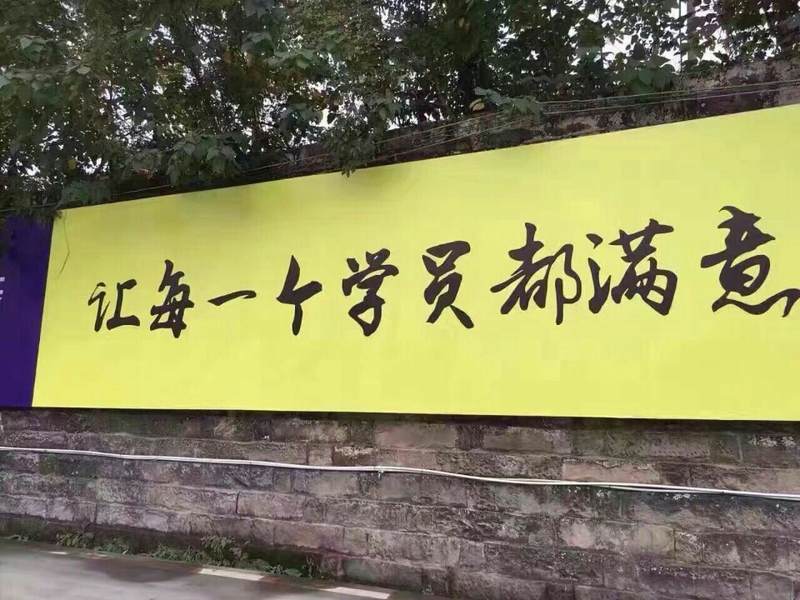 让每一个学员都满意